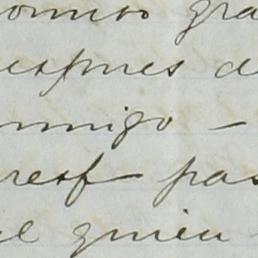 omiso gra
espues de
nmigo —
resf pas
el quien